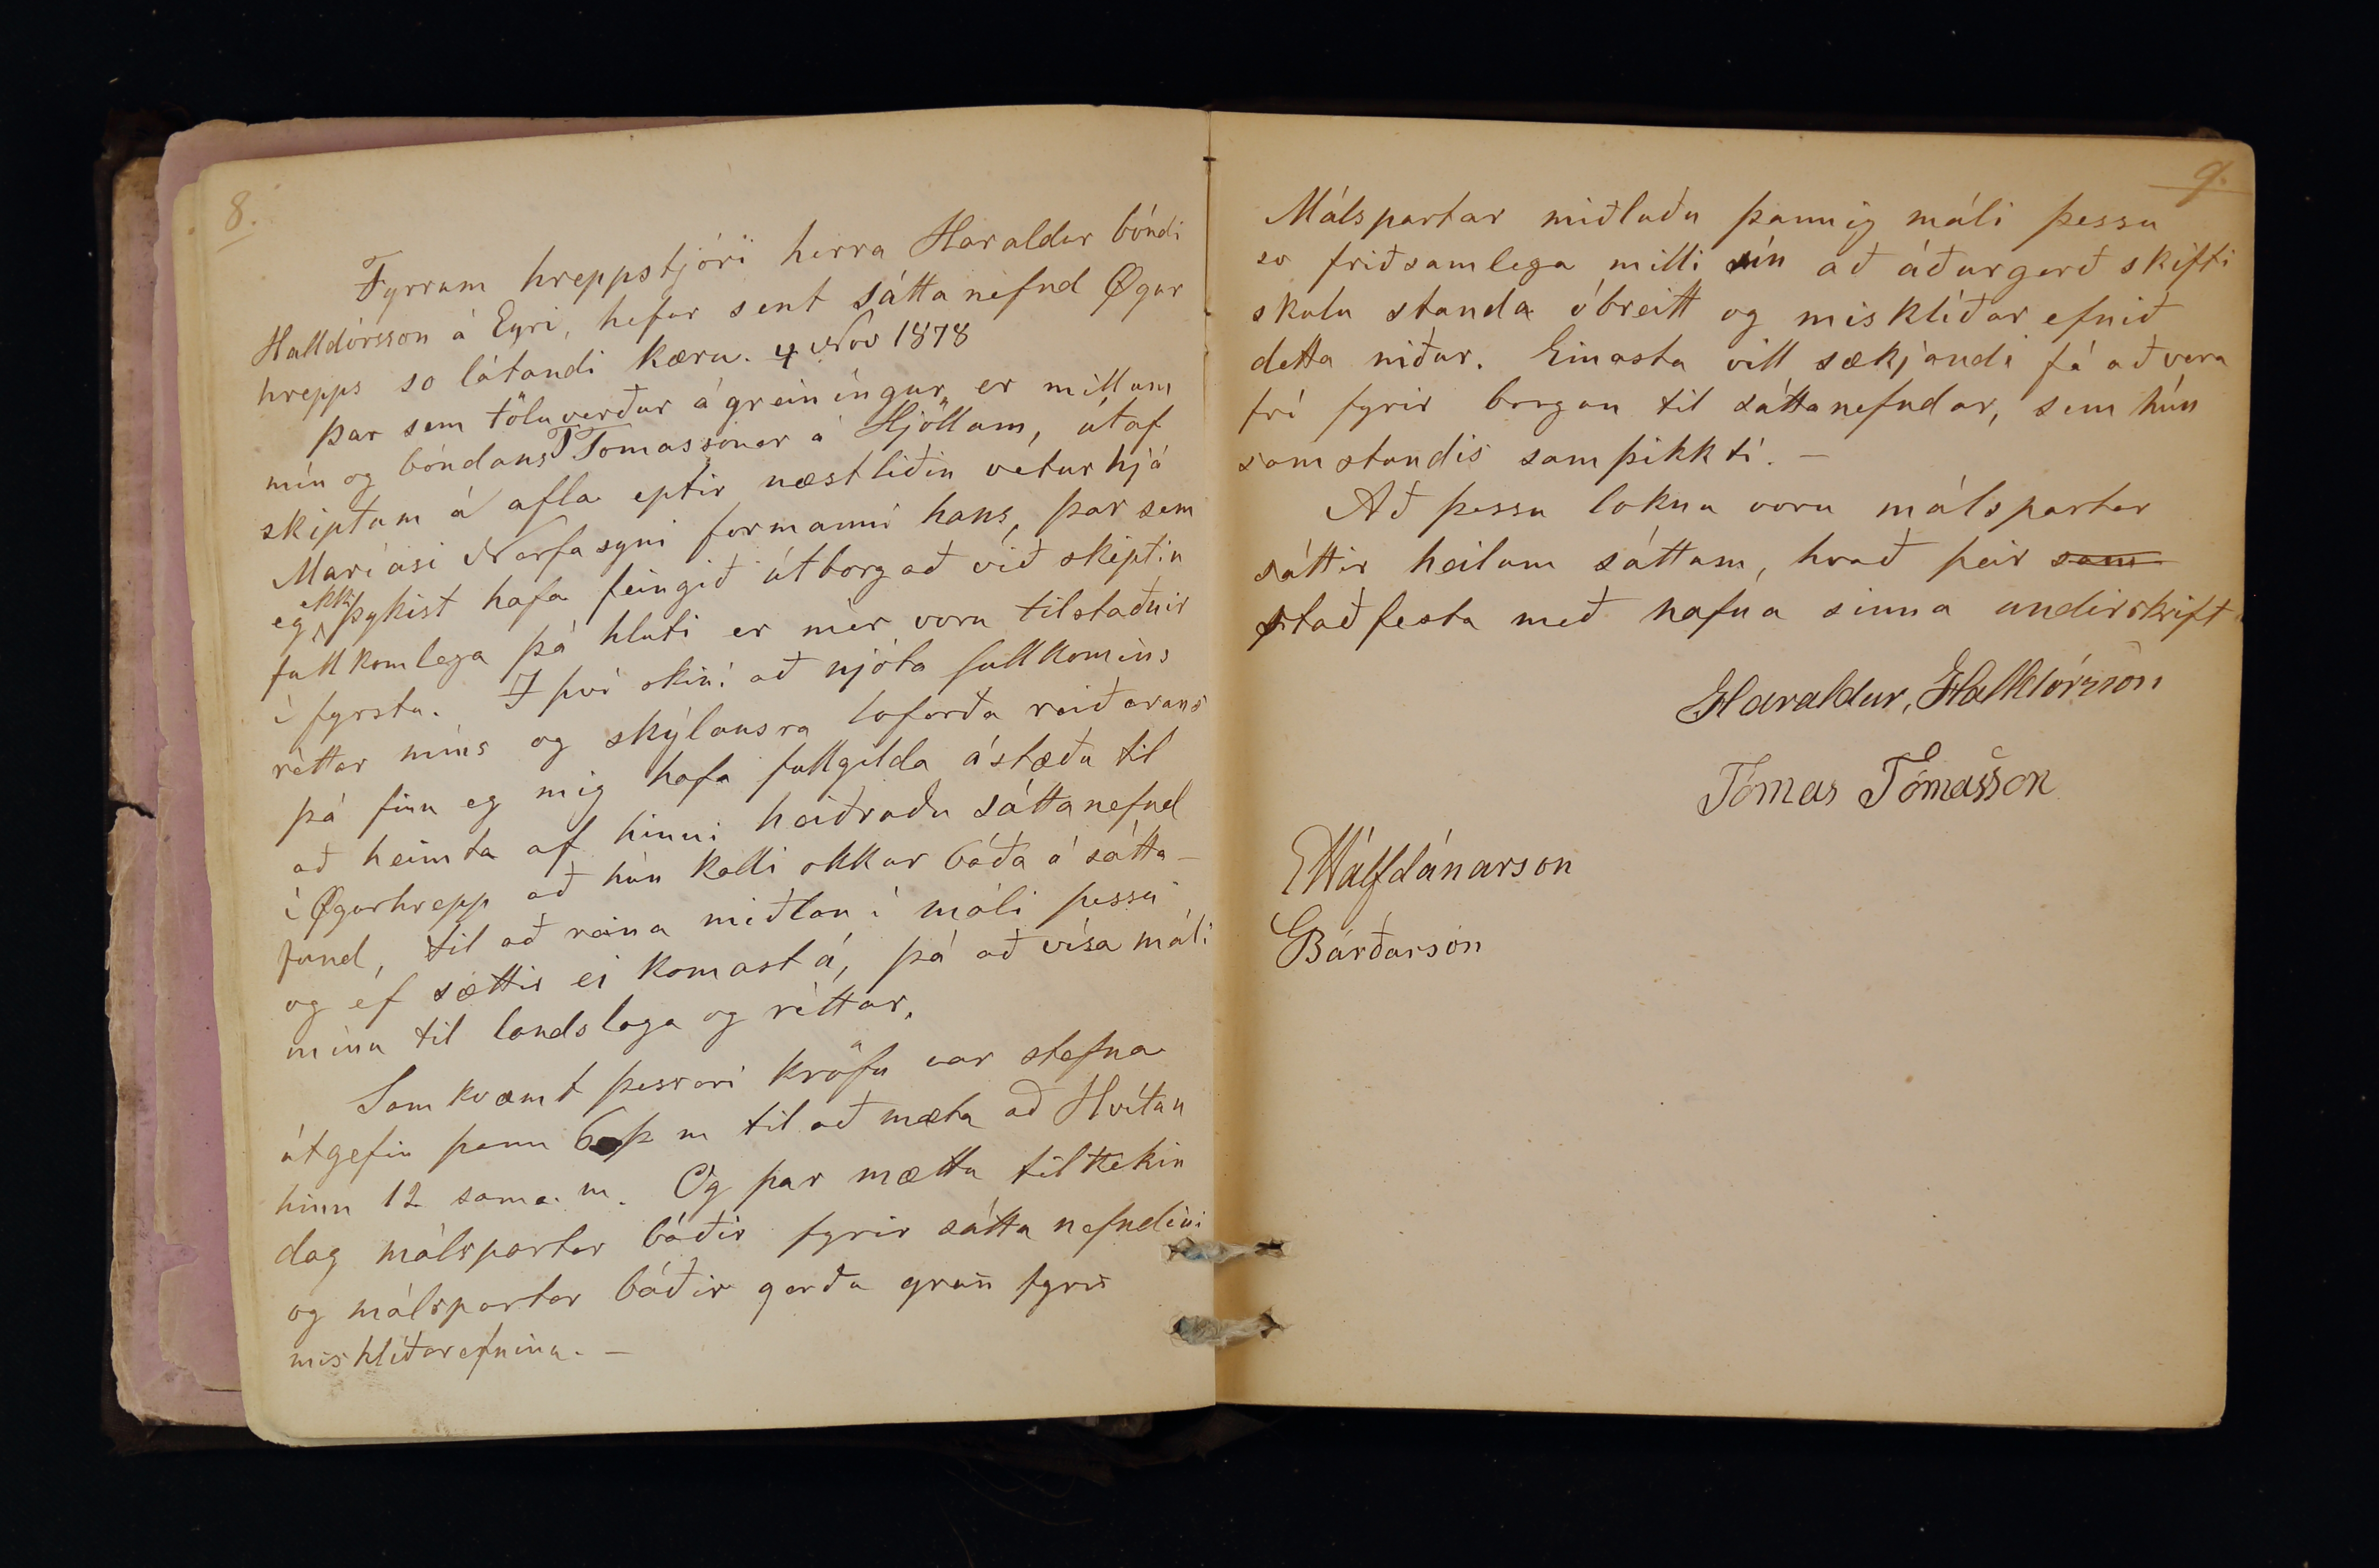 8.
Fyrrum hreppstjóri herra Haraldur bóndi
Halldórsson á Eyri, hefur sent sáttanefnd Øgur
hrepps so látandi kæru. 4 Nov 1878
Þar sem töluverður ágreiníngur er millum
mín og bóndans T Tomassonar á Hjöllum, útaf
skiptum á afla eptir næstliðin vetur hjá
Maríasi Narfasyni formanni hans, þar sem
eg ekki þykist hafa feingið útborgað við skiptin
fullkomlega þá hluti er mér voru tilstaðnir
í fyrstu. I því skini að njóta fullkomins
réttar míns og skýlausra loforða reiðarans
þá finn eg mig hafa fullgilda ástæðu til
að heimta af hinni heiðruðu sáttanefnd
í Øgurhrepp að hún kalli okkur báða á sátta-
fund, til að reina miðlan í máli þessu
og ef sættir ei komast á, þá að vísa máli
mínu til landslaga og réttar.
Samkvæmt þessari kröfu var stefna
útgefin þann 6 þ m til að mæta að Hvítan
hinn 12 sama. m. Og þar mættu tilttekin
dag málspartar báðir fyrir sátta nefndini
og málspartar báðir gerðu grein fyrir
misklíðarefninu. -
9.
Málspartar miðluðu þannig máli þessu
so friðsamlega milli sín að áðurgerð skifti
skulu standa óbreitt og misklíðar efnið
detta niður. Einasta vill sækjandi fá að vera
frí fyrir borgun til sáttanefndar, sem hún
samstundis samþikkti. -
Að þessu loknu voru málspartar
sáttir heilum sáttum, hvað þeir sam
staðfesta með nafna sinna undirskrift
Haraldur, Halldórsson
Tómas Tómasson
EHálfdánarson
GBárðarson